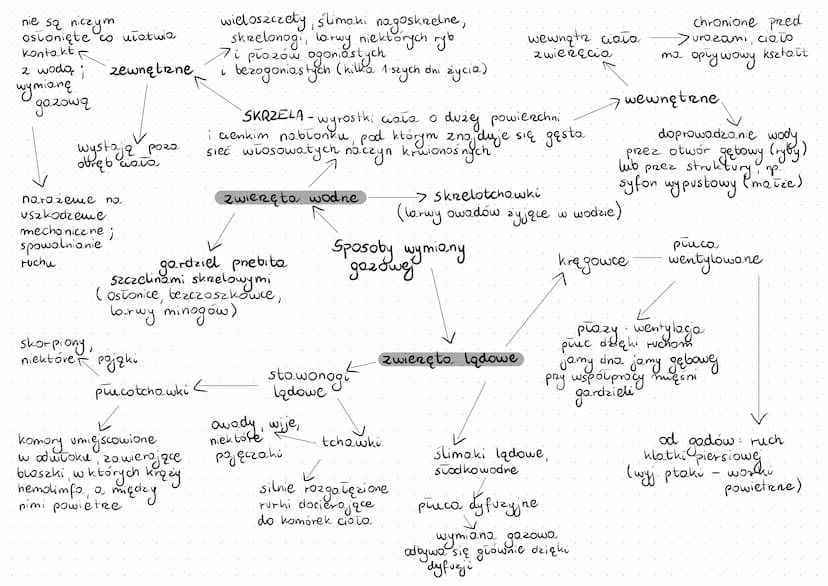 nie są niczym
osłonięte co ułatwia
kontakt
z wodą;
wymianę
gazową
zewnętrzne
wieloszczety, ślimaki nagoskrzelne,
skrzelonogi, larwy niektórych ryb
i płazów ogoniastych
i bezogoniastych (kilka 1-szych dni życia)
wewnątrz ciała
zwierzęcia
chronione przed
urazami, ciało
ma opływowy kształt
wystają poza
obręb ciała
SKRZELA - wyrostki ciała o dużej powierzchni
i cienkim nabłonku, pod którym znajduje się gęsta
sieć włosowatych naczyń krwionośnych
wewnętrzne
doprowadzanie wody
przez otwór gębowy (ryby)
lub przez struktury, np.
syfon wypustowy (małże)
narażenie na
uszkodzenie
mechaniczne;
spowolnianie
ruchu
zwierzęta wodne
skrzelotchawki
(larwy owadów żyjące w wodzie)
gardziel przebita
szczelinami skrzelowymi
(osłonice, bezczaszkowce,
larwy minogów)
Sposoby wymiany
gazowej
kręgowce
płuca
wentylowane
płazy: wentylacja
płuc dzięki ruchom
jamy dna jamy gębowej
przy współpracy mięśni
gardzieli
zwierzęta lądowe
skorpiony,
niektóre pająki
stawonogi
lądowe
płucotchawki
komory umiejscowione
w odwłoku, zawierające
blaszki, w których krąży
hemolimfa, a między
nimi powietrze
owady, wije,
niektóre
pajęczaki
tchawki
silnie rozgałęzione
rurki docierające
do komórek ciała
ślimaki lądowe,
słodkowodne
płuca dyfuzyjne
wymiana gazowa
odbywa się głównie dzięki
dyfuzji
od gadów: ruch
klatki piersiowej
(wyj ptaki - worki
powietrzne)